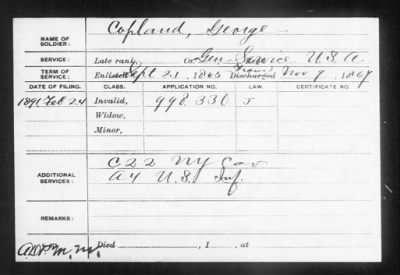 NAME OF SOLDIER: Copland, George
SERVICE: Late rank, Co. Gen. Service U.S.A.
TERM OF SERVICE: Enlisted Sept 21, 1865 Discharged Nov 9, 1867
DATE OF FILING. CLASS. APPLICATION NO. LAW. CERTIFICATE NO.
1891 Feb 24 Invalid, 998.330 5
Widow,
Minor,
C 22 NY Cav
ADDITIONAL SERVICES: A 4 U.S. Inf.
REMARKS:
Died , 1 , at